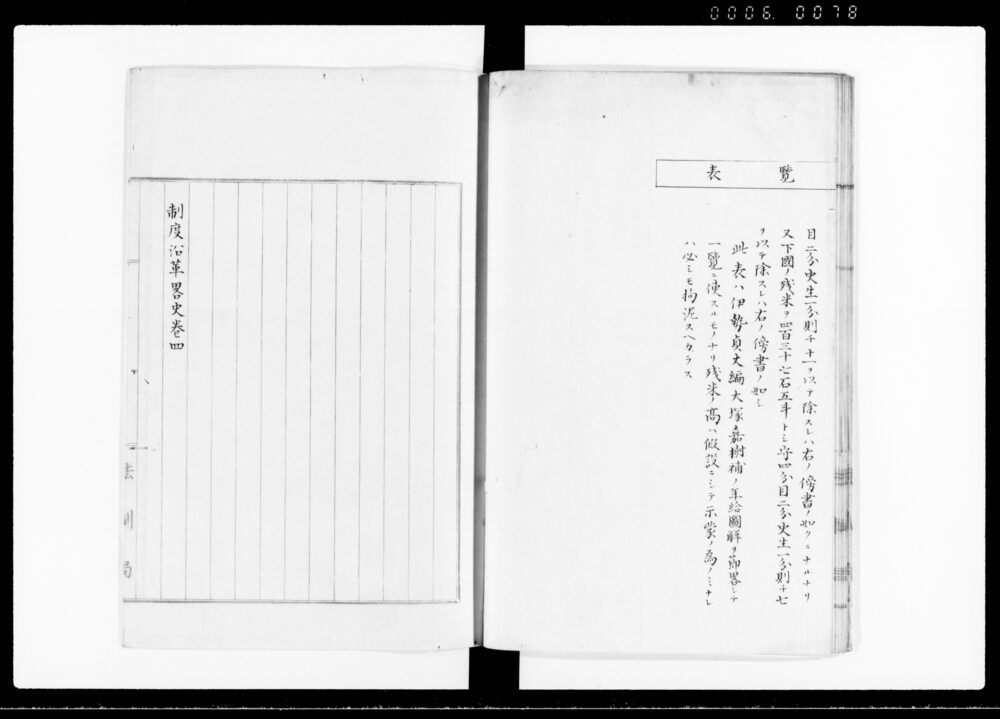 0006. 0078
覽表
目二分史生一分則チ十一ヲ以テ除スレハ右ノ傍書ノ如クニナルナリ
又下國ノ殘米ヲ四百三十七石五斗トシ守四分目二分史生一分則チ七
ヲ以テ除スレハ右ノ傍書ノ如シ
此表ハ伊勢貞丈編大塚嘉樹補ノ年給圖解ヲ節畧シテ
一覽ニ便スルモノナリ殘米ノ高ハ假設ニシテ示蒙ノ為ノミナレ
ハ必シモ拘泥スヘカラス
制度沿革畧史巻四
法制局